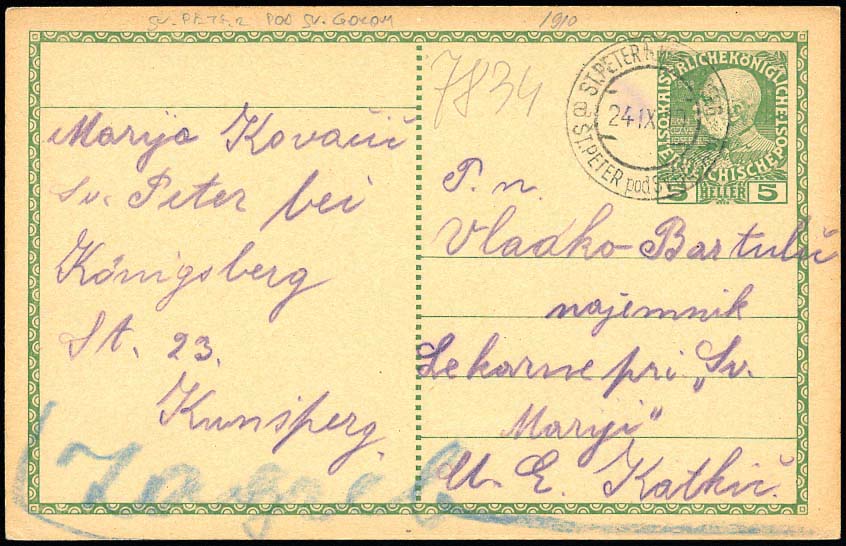 SV. PETER POD SV. GORAM
1910
7834
ST. PETER
24 IX
ST. PETER pod Sv.
KAISERLICHE KÖNIGLICHE
5 HELLER 5
Marija Kovačič
Sv. Peter bei
Königsberg
St. 23.
Kunsperg.
T. n.
Vladko Bartulić
najemnik
Lekarne pri „Sv.
Mariji"
U. E. Katkić.
Zagreb